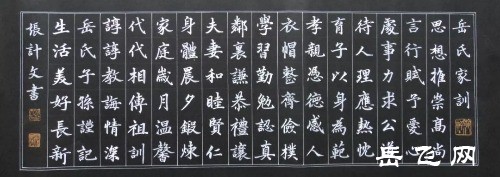 岳氏家訓
思想推崇高尚
言行賦予愛心
處事力求公
待人理應熱忱
育子以身為範
孝親憑德感人
衣帽整齊儉樸
學習勤勉認真
鄰裏謙恭禮讓
夫妻和睦賢仁
身體晨夕鍛煉
家庭歲月溫馨
代代相傳祖訓
諄諄教誨情深
岳氏子孫謹記
生活美好長新
張計文書
岳飞网